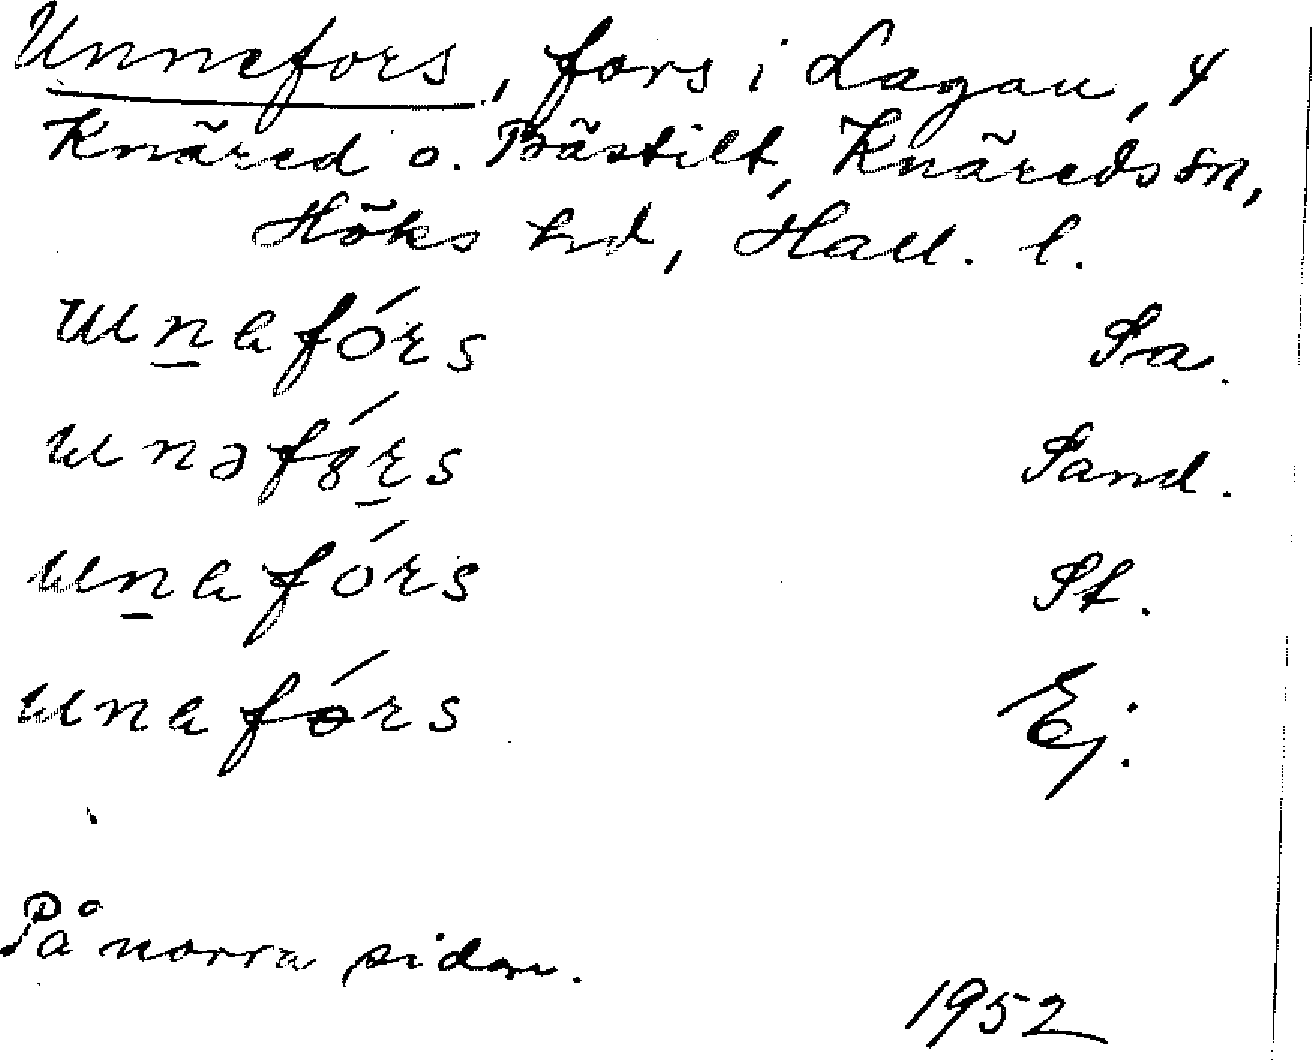 Unnefors, fors i Lagan, 4
Knäred o. Prästilt, Knäreds sn,
Höks hd, Hall. l.
unafórs Pa.
unəfɤ́rs Pand.
unafórs Pt.
unafórs Ej.
På norra sidan.
1952